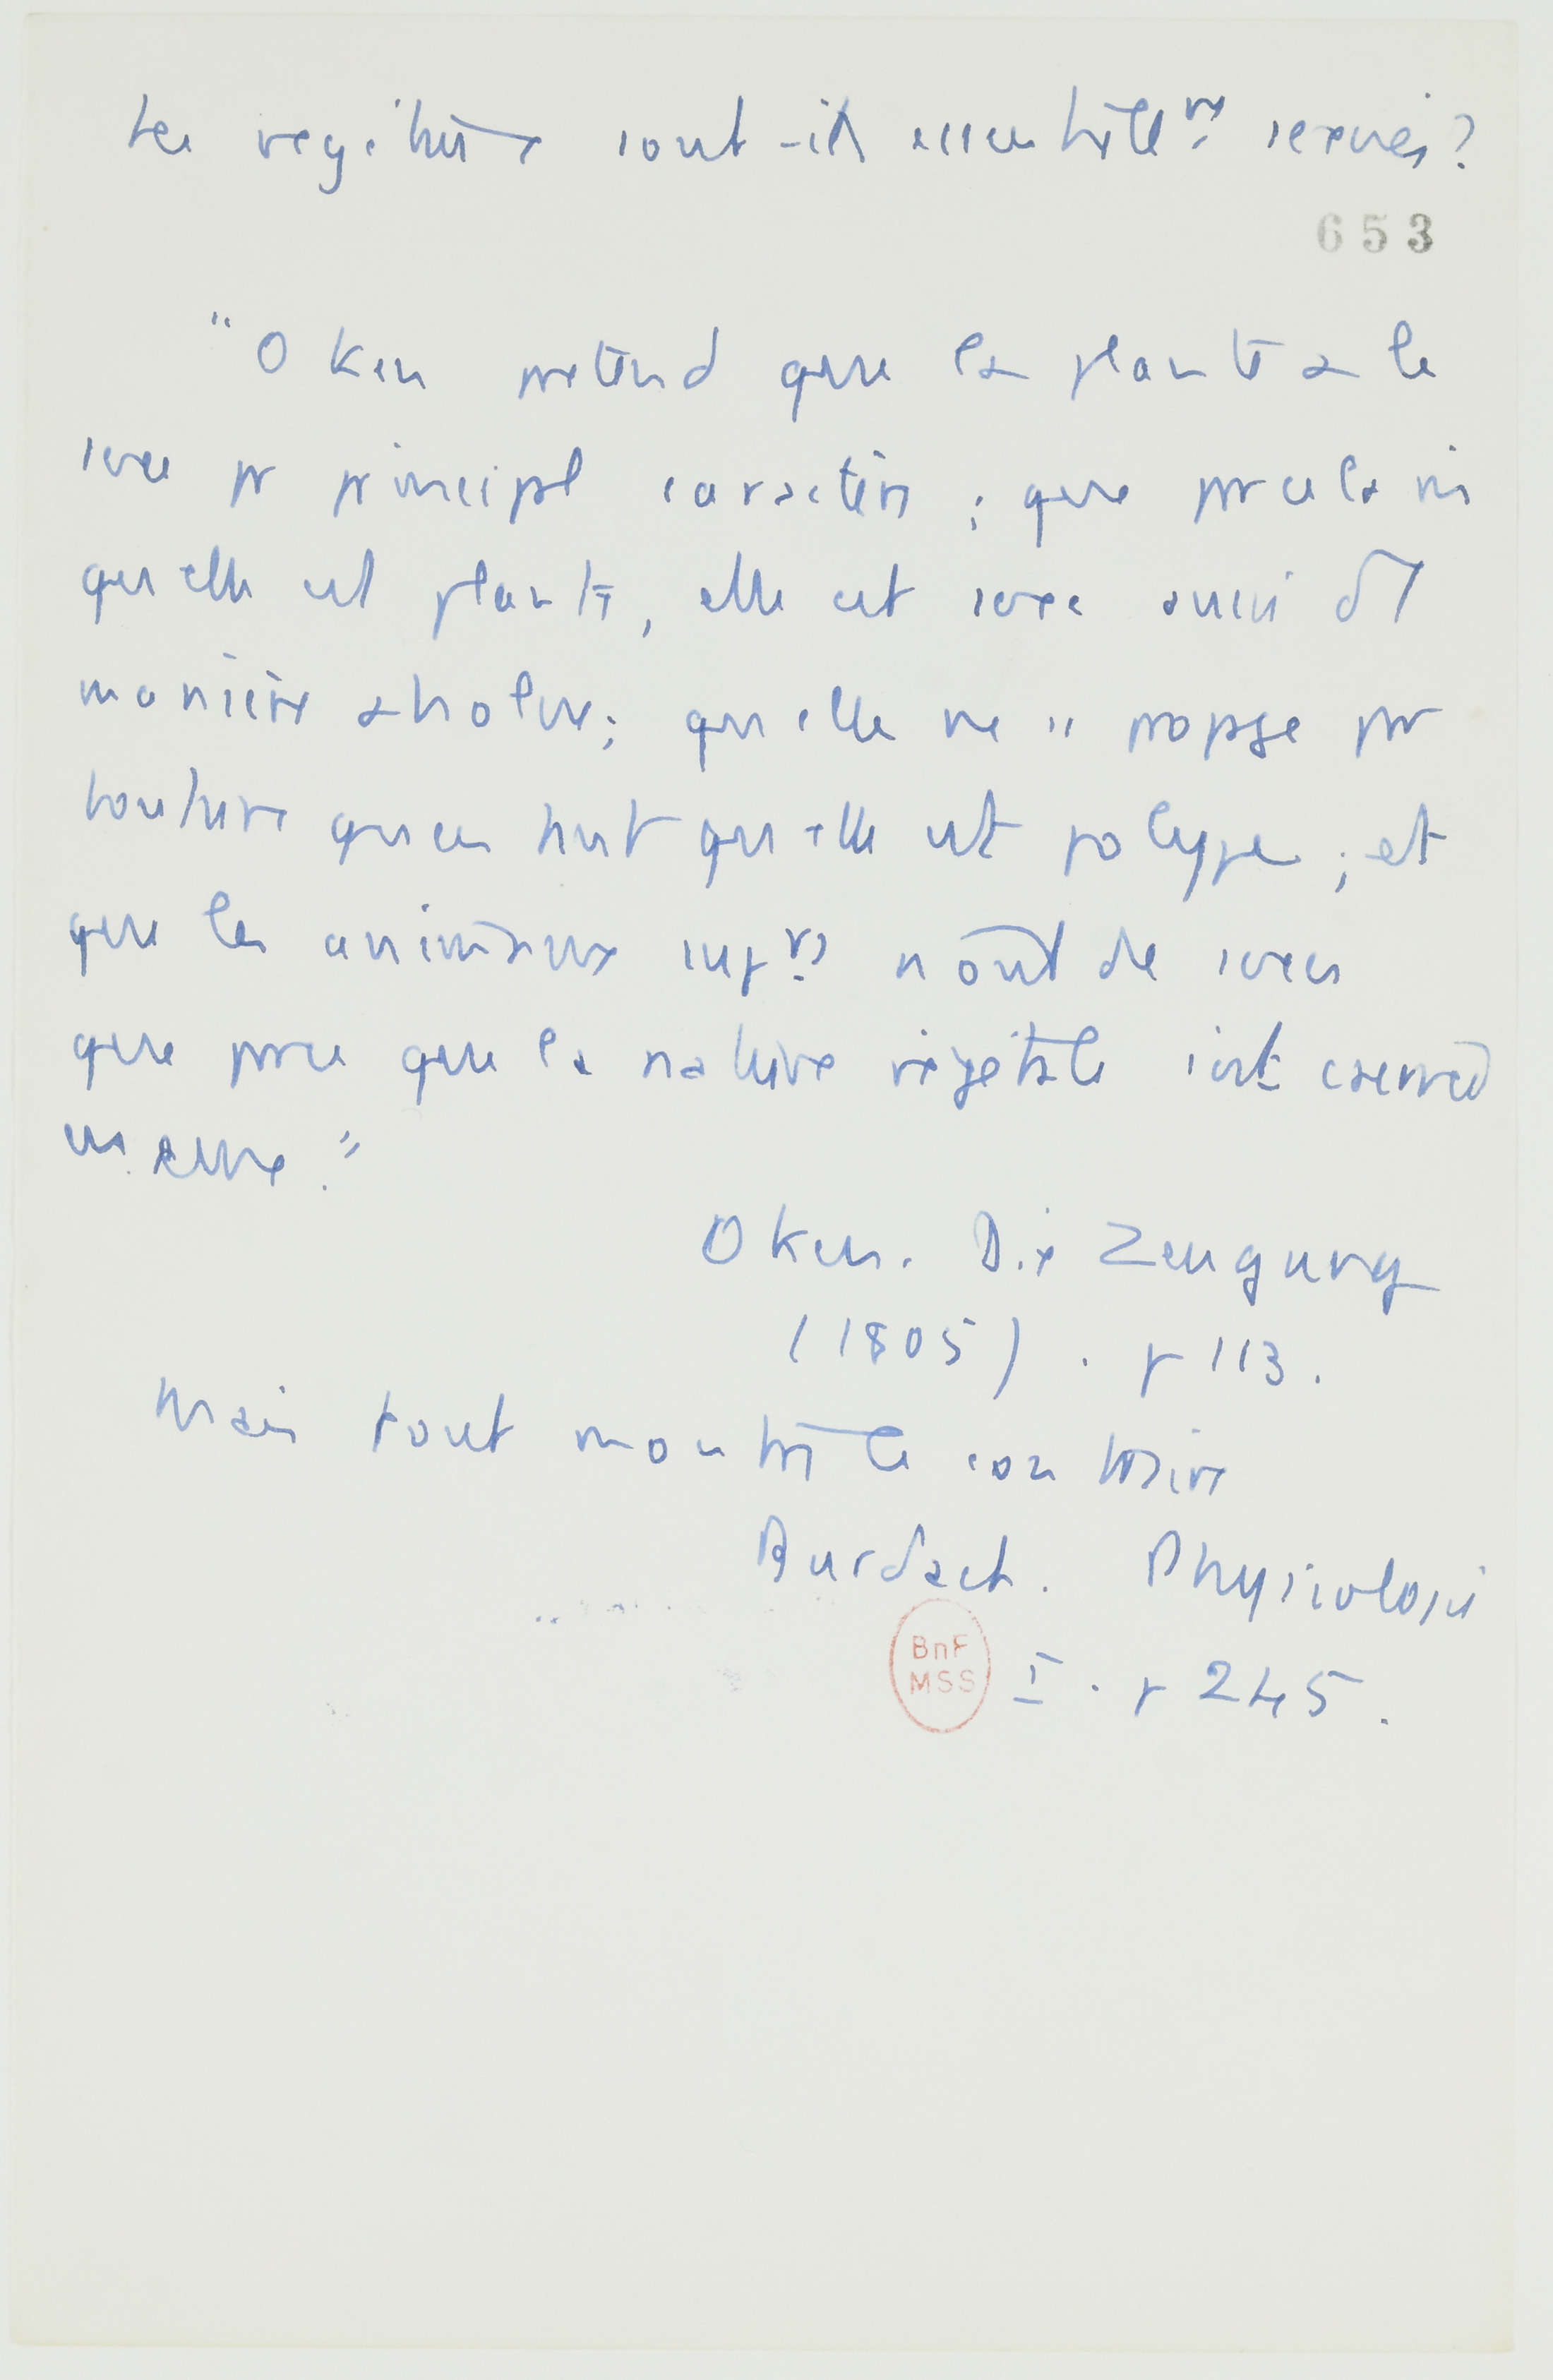 Les végétaux sont-ils essentiellemt sexués?
653
"Oken prétend que la plante a le
sexe pr principal caractère ; que par cela mê
qu'elle est plante, elle est sexe aussi d'1
manière absolue; qu'elle ne se propage par
bouture qu'en tant qu'elle est polype ; et
que les animaux suprs n'ont de sexes
que parce que la nature végétale s'est conservée
en eux."
Oken. Die Zeugung
(1805). p 113.
Mais tout montre le contraire
Burdach. Physiologie
BnF
MSS
I. p 245.